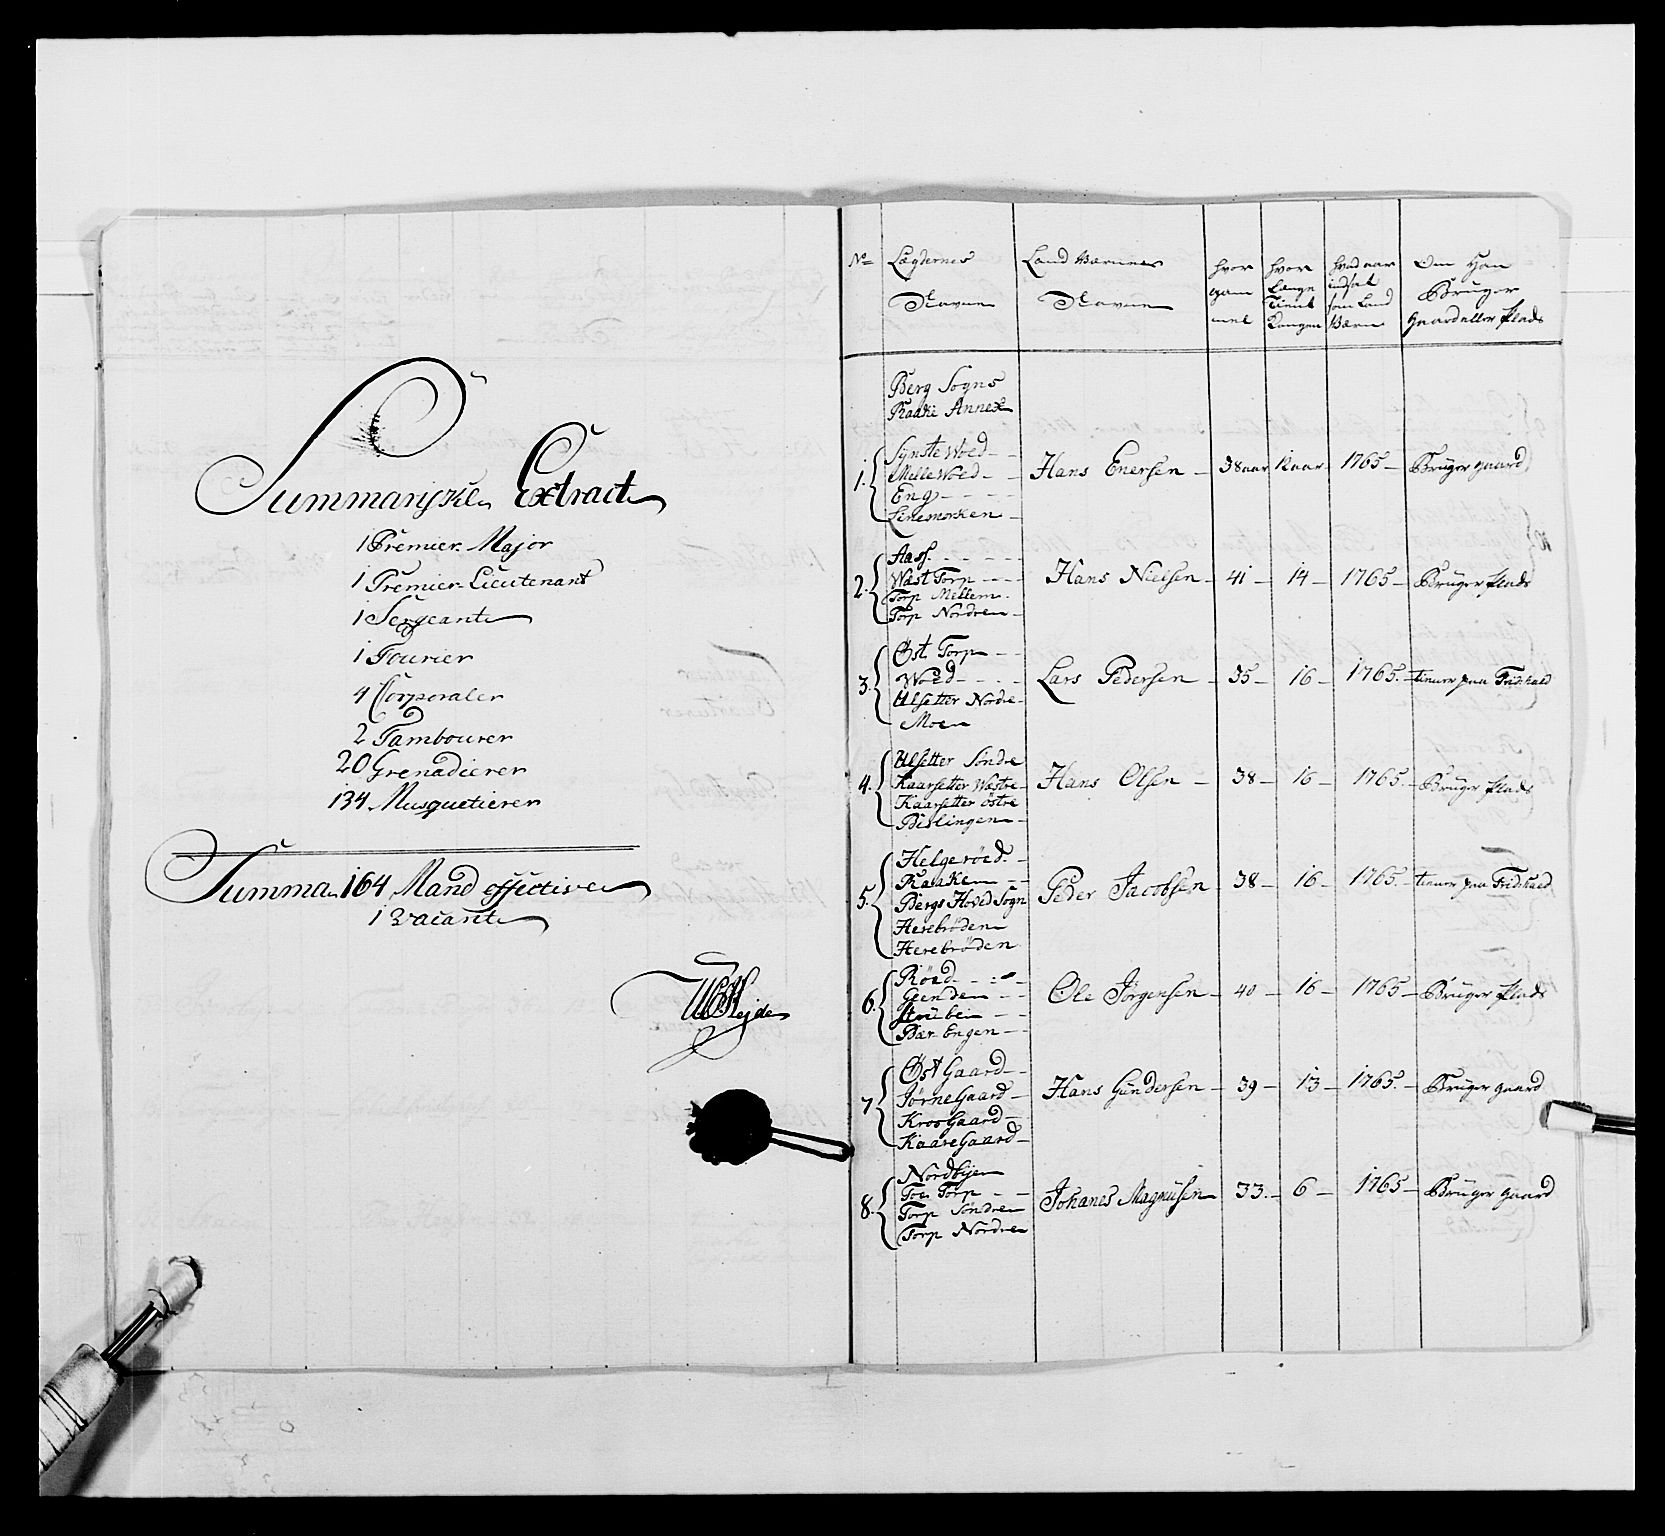 Summariske Extract
1 Premier Major
1 Premier Lieutenant
1 Sergeant
1 Fourier
4 Corporaler
2 Tambourer
20 Grenadierer
134 Musquetierer
Summa 164 Mand effective
1 vacant
No Lægdernes Navne
Land Værnes Navne
hvor gammel
hvor Længe Tient Kongen
hvad aar indsat som Land Værn
Om Han Bruger Gaard eller Plads
Berg Sogns
Raake Annex
1. Synste Woed
Melle Woed
Eng
Linemorken
Hans Enersen 38 aar 12 aar 1765 Bruger gaard
2. Aass
Wæst Torp
Torp Mellem
Torp Nordren
Hans Nielsen 41 14 1765 Bruger Plads
3. Øst Torp
Woed
Ulsetter Nordre
Moen
Lars Pedersen 35 16 1765 tienner paa Fridrhald
4. Ulsetter Søndre
Kaarsetter Wæstre
Kaarsetter Østre
Bislingen
Hans Olsen 38 16 1765 Bruger Plads
5. Helgerøed
Raaken
Bergs Hoved Sogn
Herebrøden
Herebrøden
Peder Jacobsen 38 16 1765 tienner paa Fridrhald
6. Røed
Geenden
Bær Engen
Ole Jørgensen 40 16 1765 Bruger Plads
7 Øst Gaard
Jørne Gaard
Kroo Gaard
Kaare Gaard
Hans Gundersen 39 13 1765 Bruger gaard
8. Nordbyen
Toe Torp
Torp Søndren
Torp Nordren
Johanes Magnusen 33 6 1765 Bruger gaard